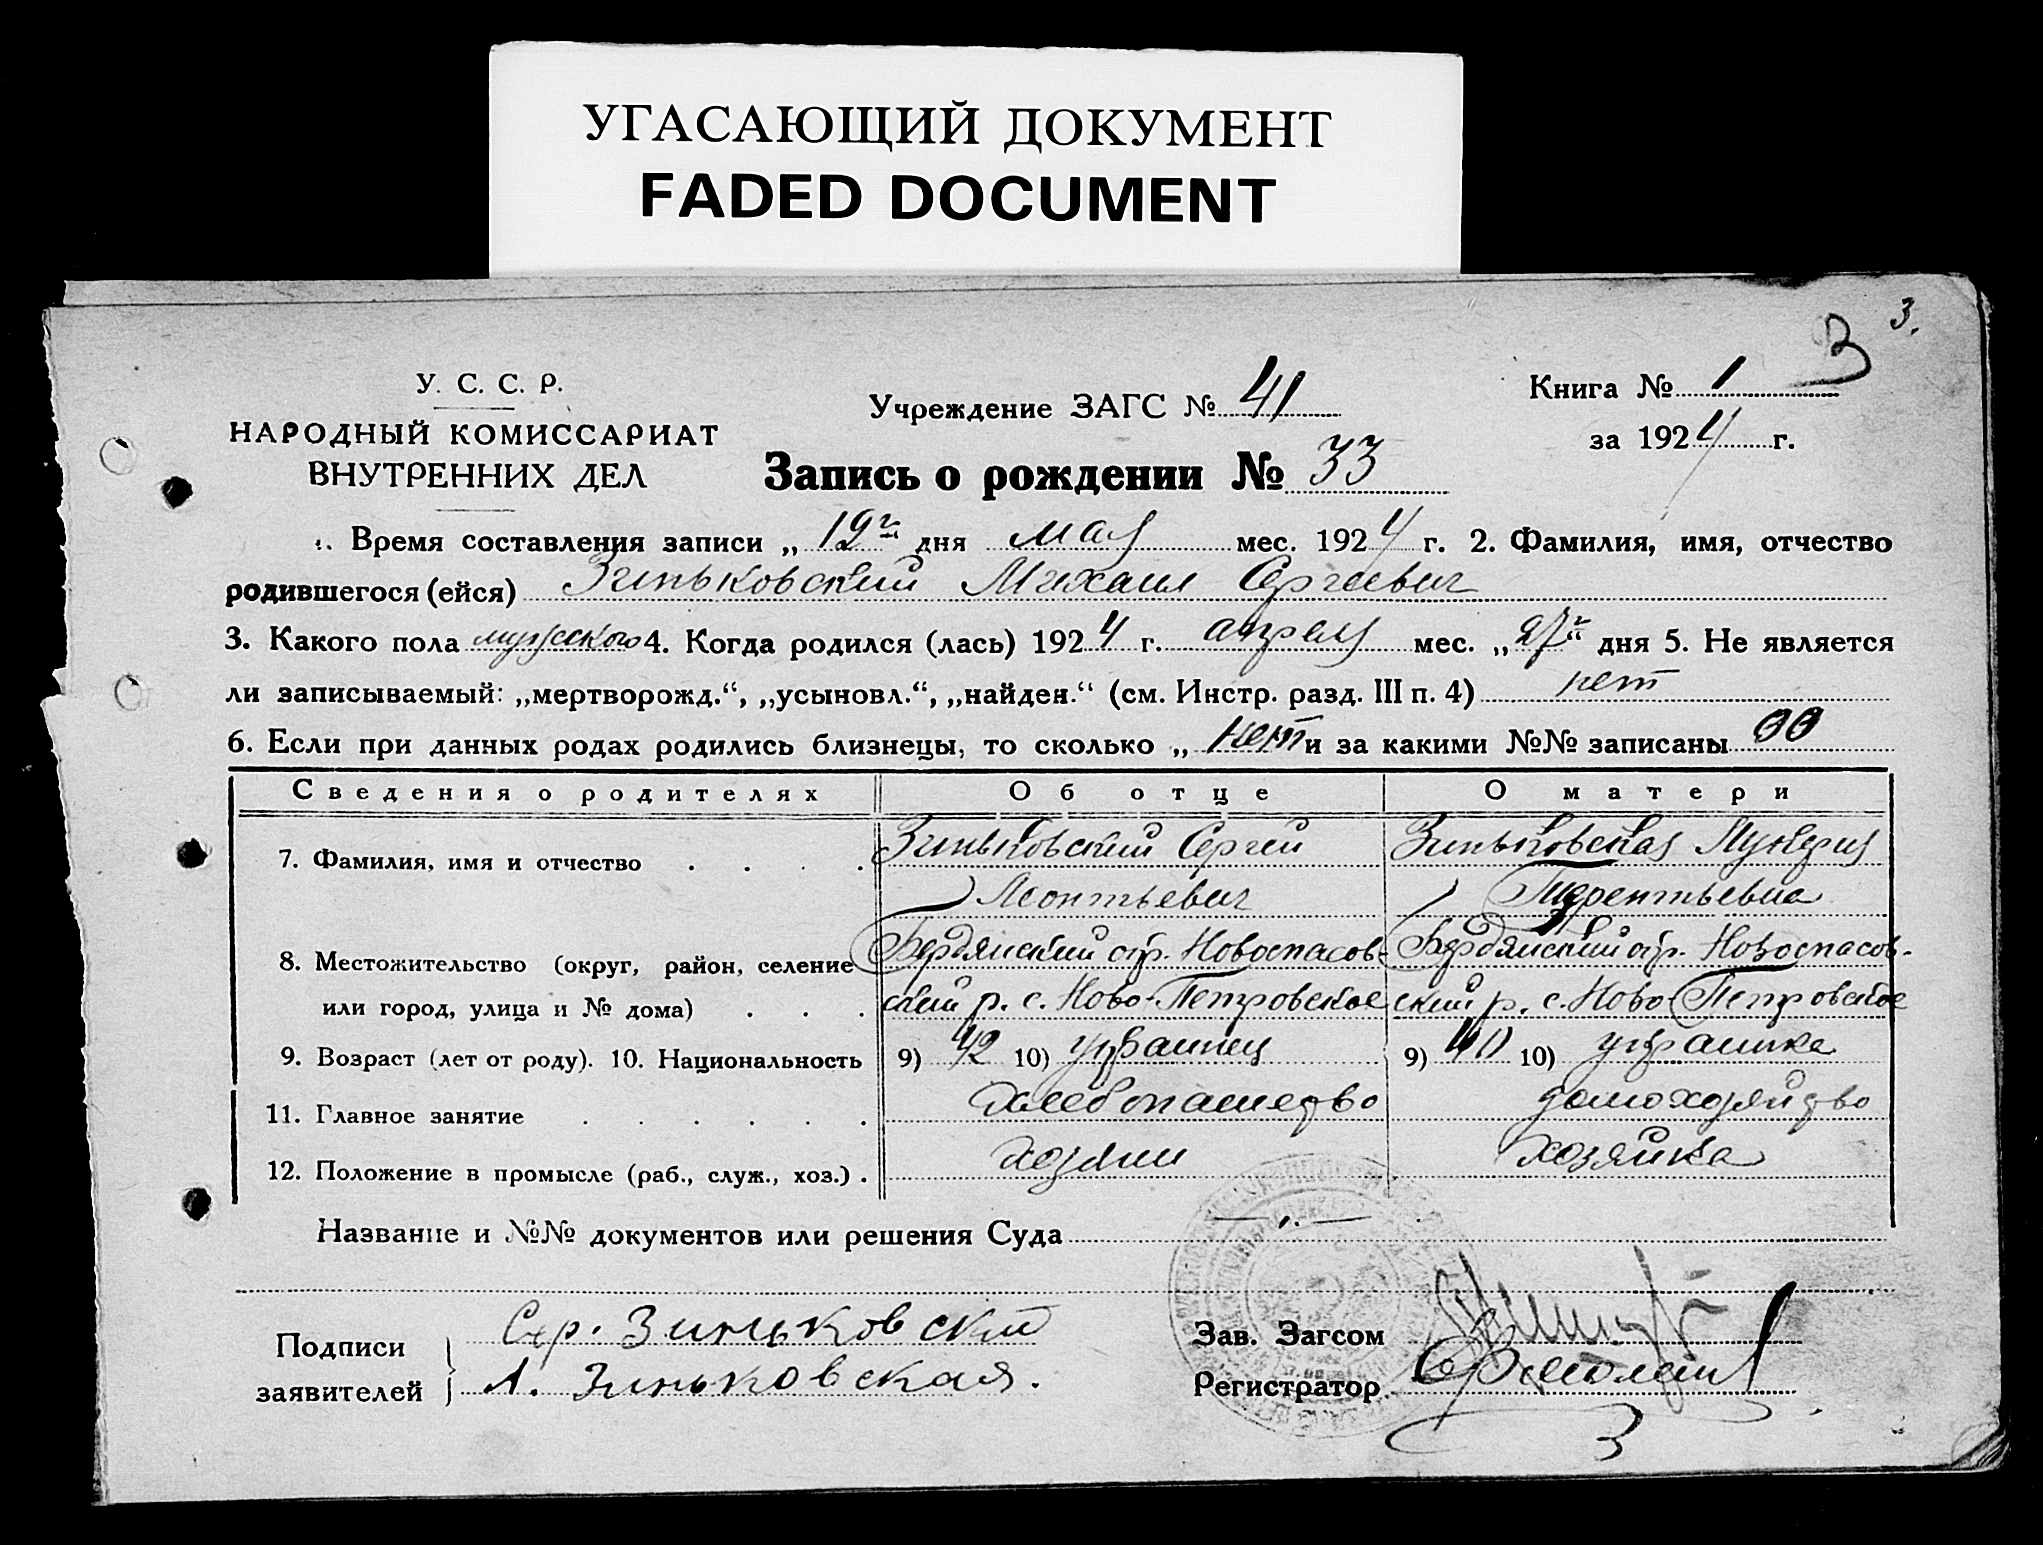 УГАСАЮЩИЙ ДОКУМЕНТ
FADED DOCUMENT
3.
3
У. С. С. Р.
НАРОДНЫЙ КОМИССАРИАТ
ВНУТРЕННИХ ДЕЛ
Учреждение ЗАГС № 41
Книга № 1
за 1924 г.
Запись о рождении № 33
1. Время составления записи „19го дня мая мес. 1924 г. 2. Фамилия, имя, отчество
родившегося (ейся) Зиньковский Михаил Сергеевич
3. Какого пола мужского 4. Когда родился (лась) 1924 г. апреля мес. „27го“ дня 5. Не является
ли записываемый: „мертворожд.“, „усыновл.“, „найден.“ (см. Инстр. разд. III п. 4) нет
6. Если при данных родах родились близнецы, то сколько „ нет и за какими №№ записаны 00
Сведения о родителях Об отце О матери
7. Фамилия, имя и отчество . . . . Зиньковский Сергей Зиньковская Лукерия
Леонтьевич Терентьевна
8. Местожительство (округ, район, селение Бердянский окр. Новоспасов- Бердянский окр. Новоспасов-
или город, улица и № дома) . . . ский р. с. Ново-Петровское ский р. с. Ново-Петровское
9. Возраст (лет от роду). 10. Национальность 9) 42 10) украинец 9) 40 10) украинка
11. Главное занятие . . . . . . хлебопашество домохозяйство
12. Положение в промысле (раб., служ., хоз.) . хозяин хозяйка
Название и №№ документов или решения Суда
Подписи заявителей
Сер. Зиньковский
А. Зиньковская.
Зав. Загсом
Регистратор
3